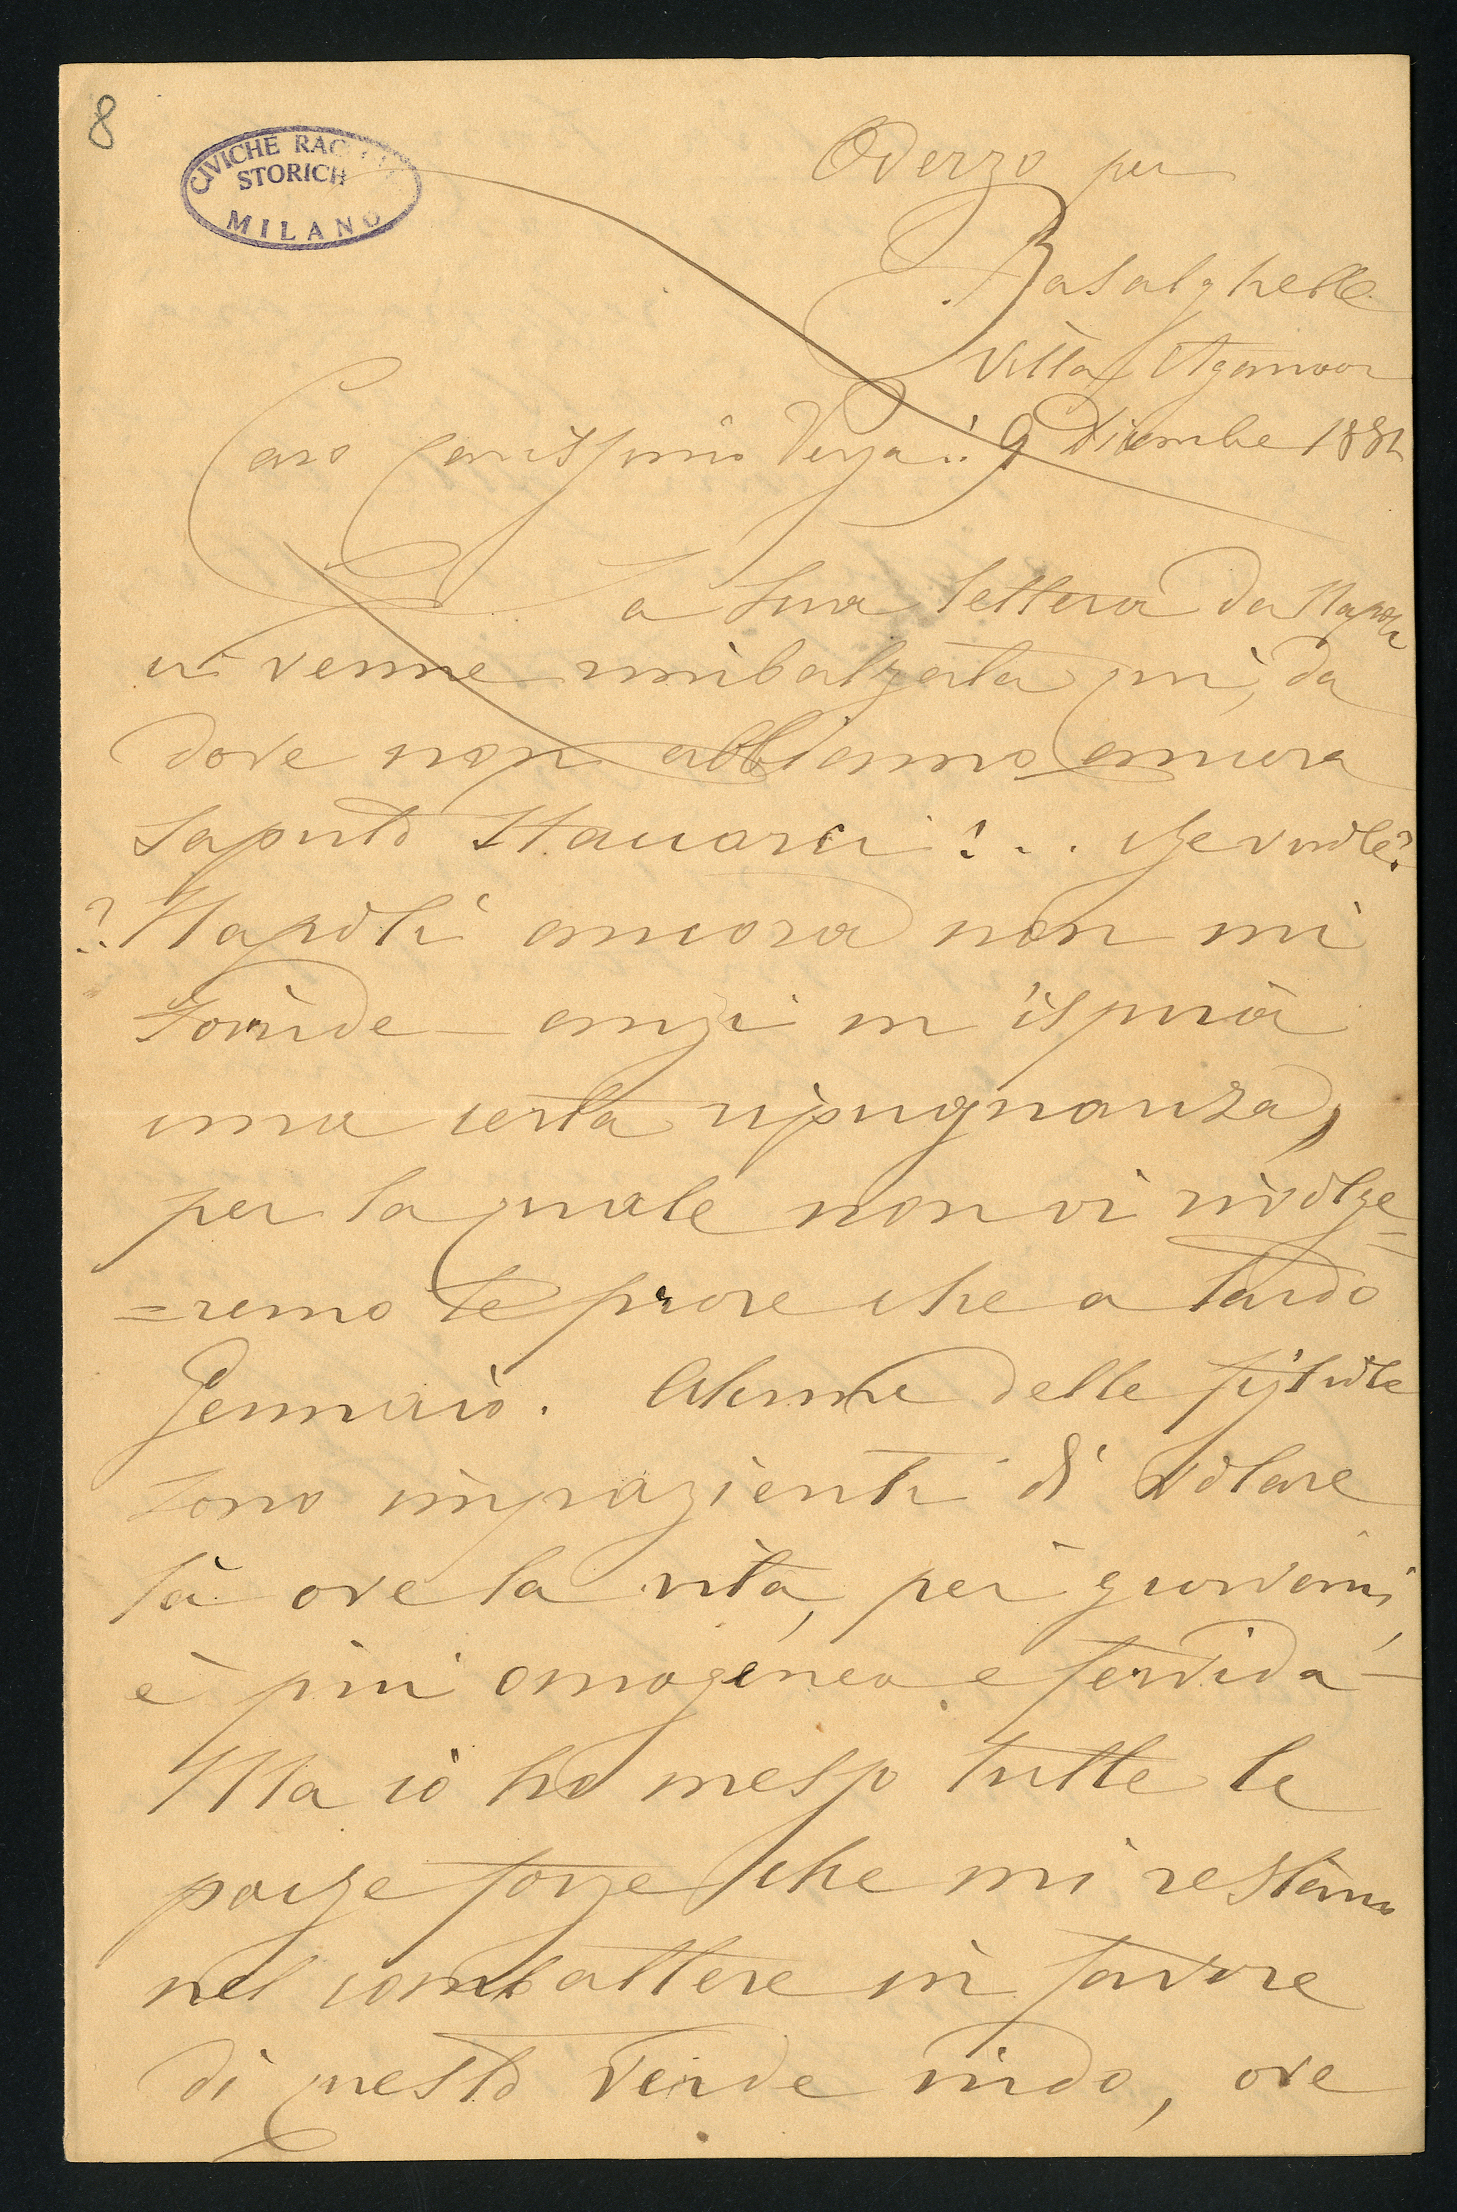 8
CIVICHE RAC
STORICH
MILANO
Oderzo per
Basalghelle
Villa Aganoor
9 Dicembre 1881
Caro Carissimo Verga!
La sua lettera da Napoli
ci venne rimbalzata qui, da
dove non abbiamo ancora
saputo staccarci!.. Che vuole?
?.. Napoli ancora non mi
sorride - anzi m'ispira
una certa ripugnanza,
per la quale non vi rivolge=
=remo le prore che a tardo
Gennaio. Alcune delle figliole
sono impazienti di volare
là ove la vita, pei giovani,
è più omogenea e fervida -
Ma io ho messo tutte le
poche forze che mi restano
nel combattere in favore
di questo verde nido, ove